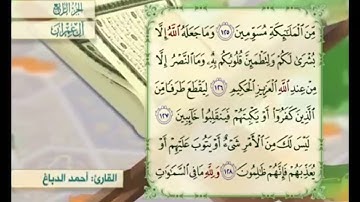 الجزء الرابع
آل عمران
مِّنَ الْمَلَٰٓئِكَةِ مُسَوِّمِينَ ١٢٥ وَمَا جَعَلَهُ اللَّهُ إِلَّا
بُشْرَىٰ لَكُمْ وَلِتَطْمَئِنَّ قُلُوبُكُم بِهِۦ وَمَا النَّصْرُ إِلَّا
مِنْ عِندِ اللَّهِ الْعَزِيزِ الْحَكِيمِ ١٢٦ لِيَقْطَعَ طَرَفًا مِّنَ
الَّذِينَ كَفَرُوٓا۟ أَوْ يَكْبِتَهُمْ فَيَنقَلِبُوا۟ خَآئِبِينَ ١٢٧
لَيْسَ لَكَ مِنَ الْأَمْرِ شَىْءٌ أَوْ يَتُوبَ عَلَيْهِمْ أَوْ
يُعَذِّبَهُمْ فَإِنَّهُمْ ظَٰلِمُونَ ١٢٨ وَلِلَّهِ مَا فِى السَّمَٰوَٰتِ
القارئ: أحمد الدباغ